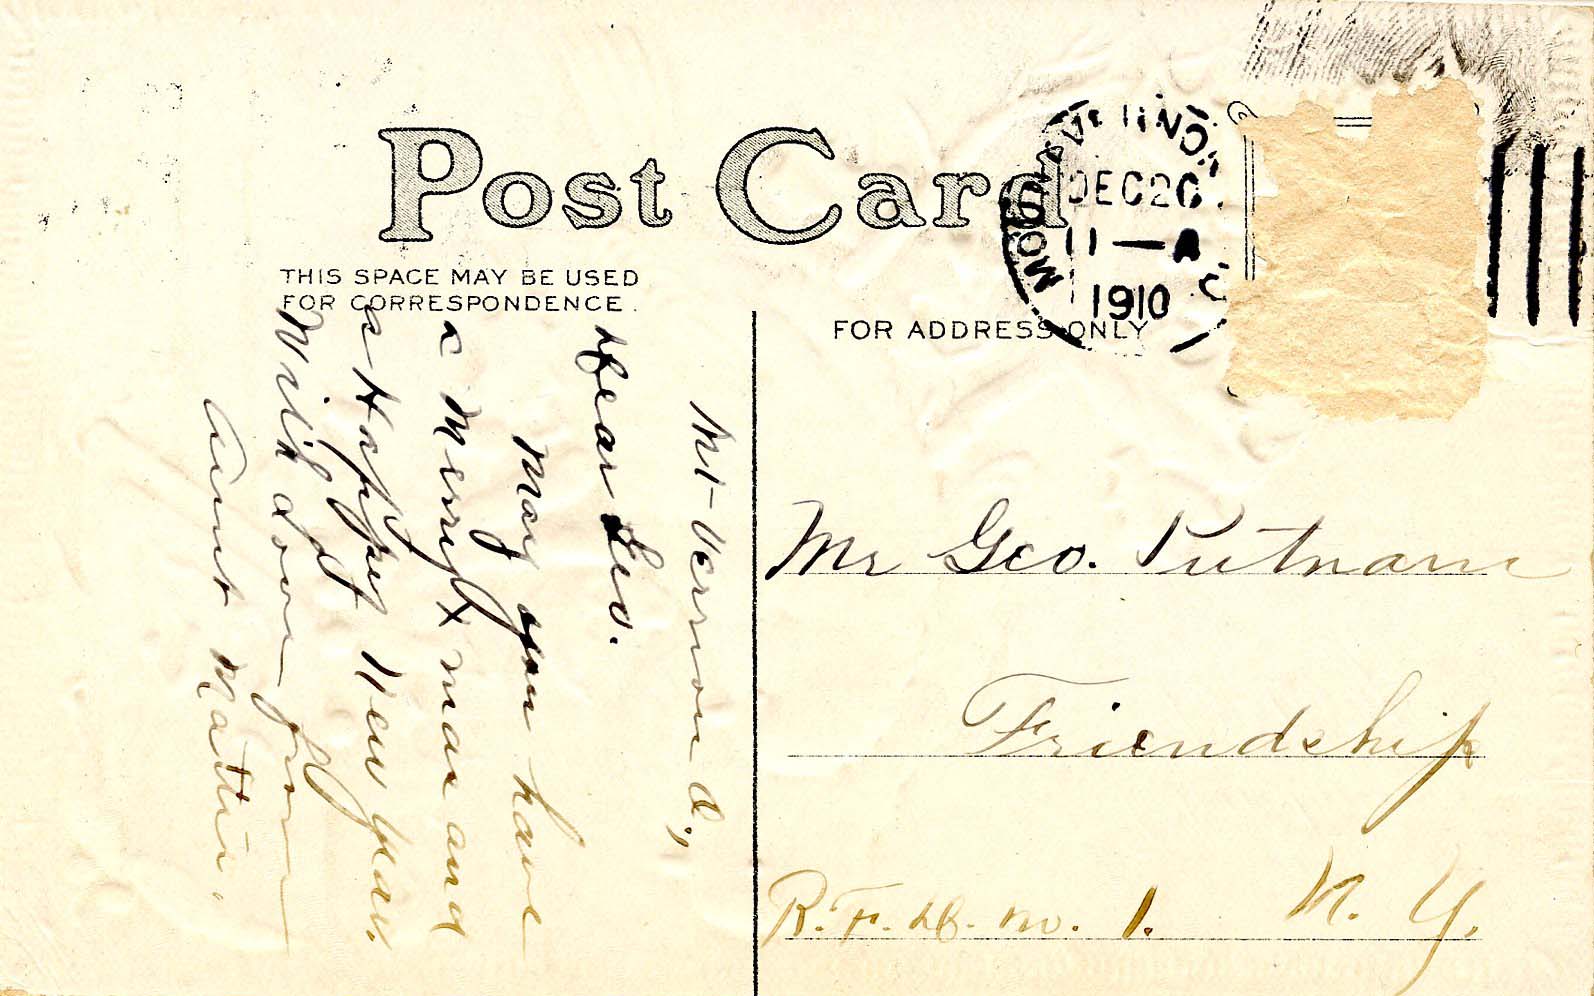 Post Card
THIS SPACE MAY BE USED
FOR CORRESPONDENCE.
FOR ADDRESS ONLY
MOUNT VERNON,
DEC 20
11 — A
1910
O
Mt-Vernon O,
Dear Geo.
May you have
a Merry Xmas and
a Happy New year.
With dst love from
Aunt Mattie.
Mr Geo. Putnam
Friendship
R. F. D. no. 1. N. Y.